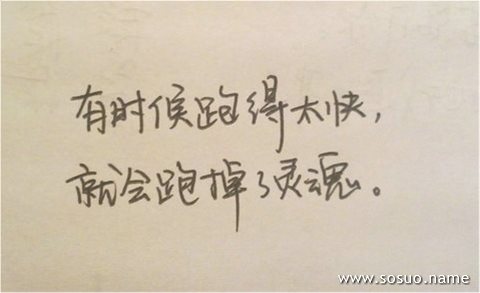 有时候跑得太快，
就会跑掉了灵魂。
www.sosuo.name